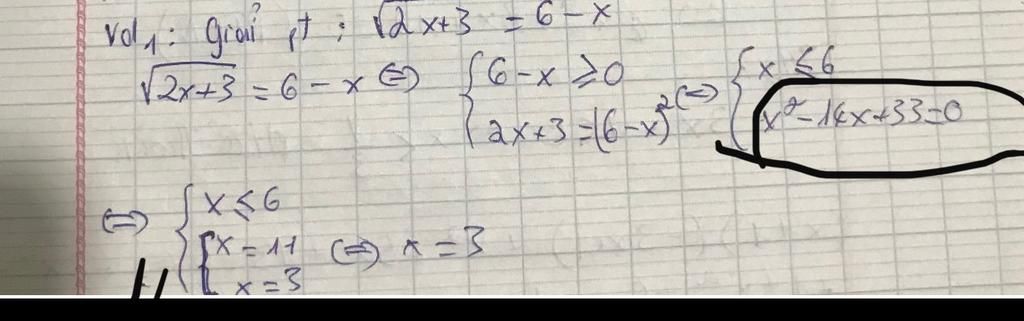 Vd1: Giải pt: √2x+3 = 6-x
√2x+3 = 6-x ⇔ { 6-x ≥ 0 ⇔ { x ≤ 6
2x+3 = (6-x)² x²-14x+33=0
⇔ { x ≤ 6
[ x = 11 ⇔ x = 3
x = 3